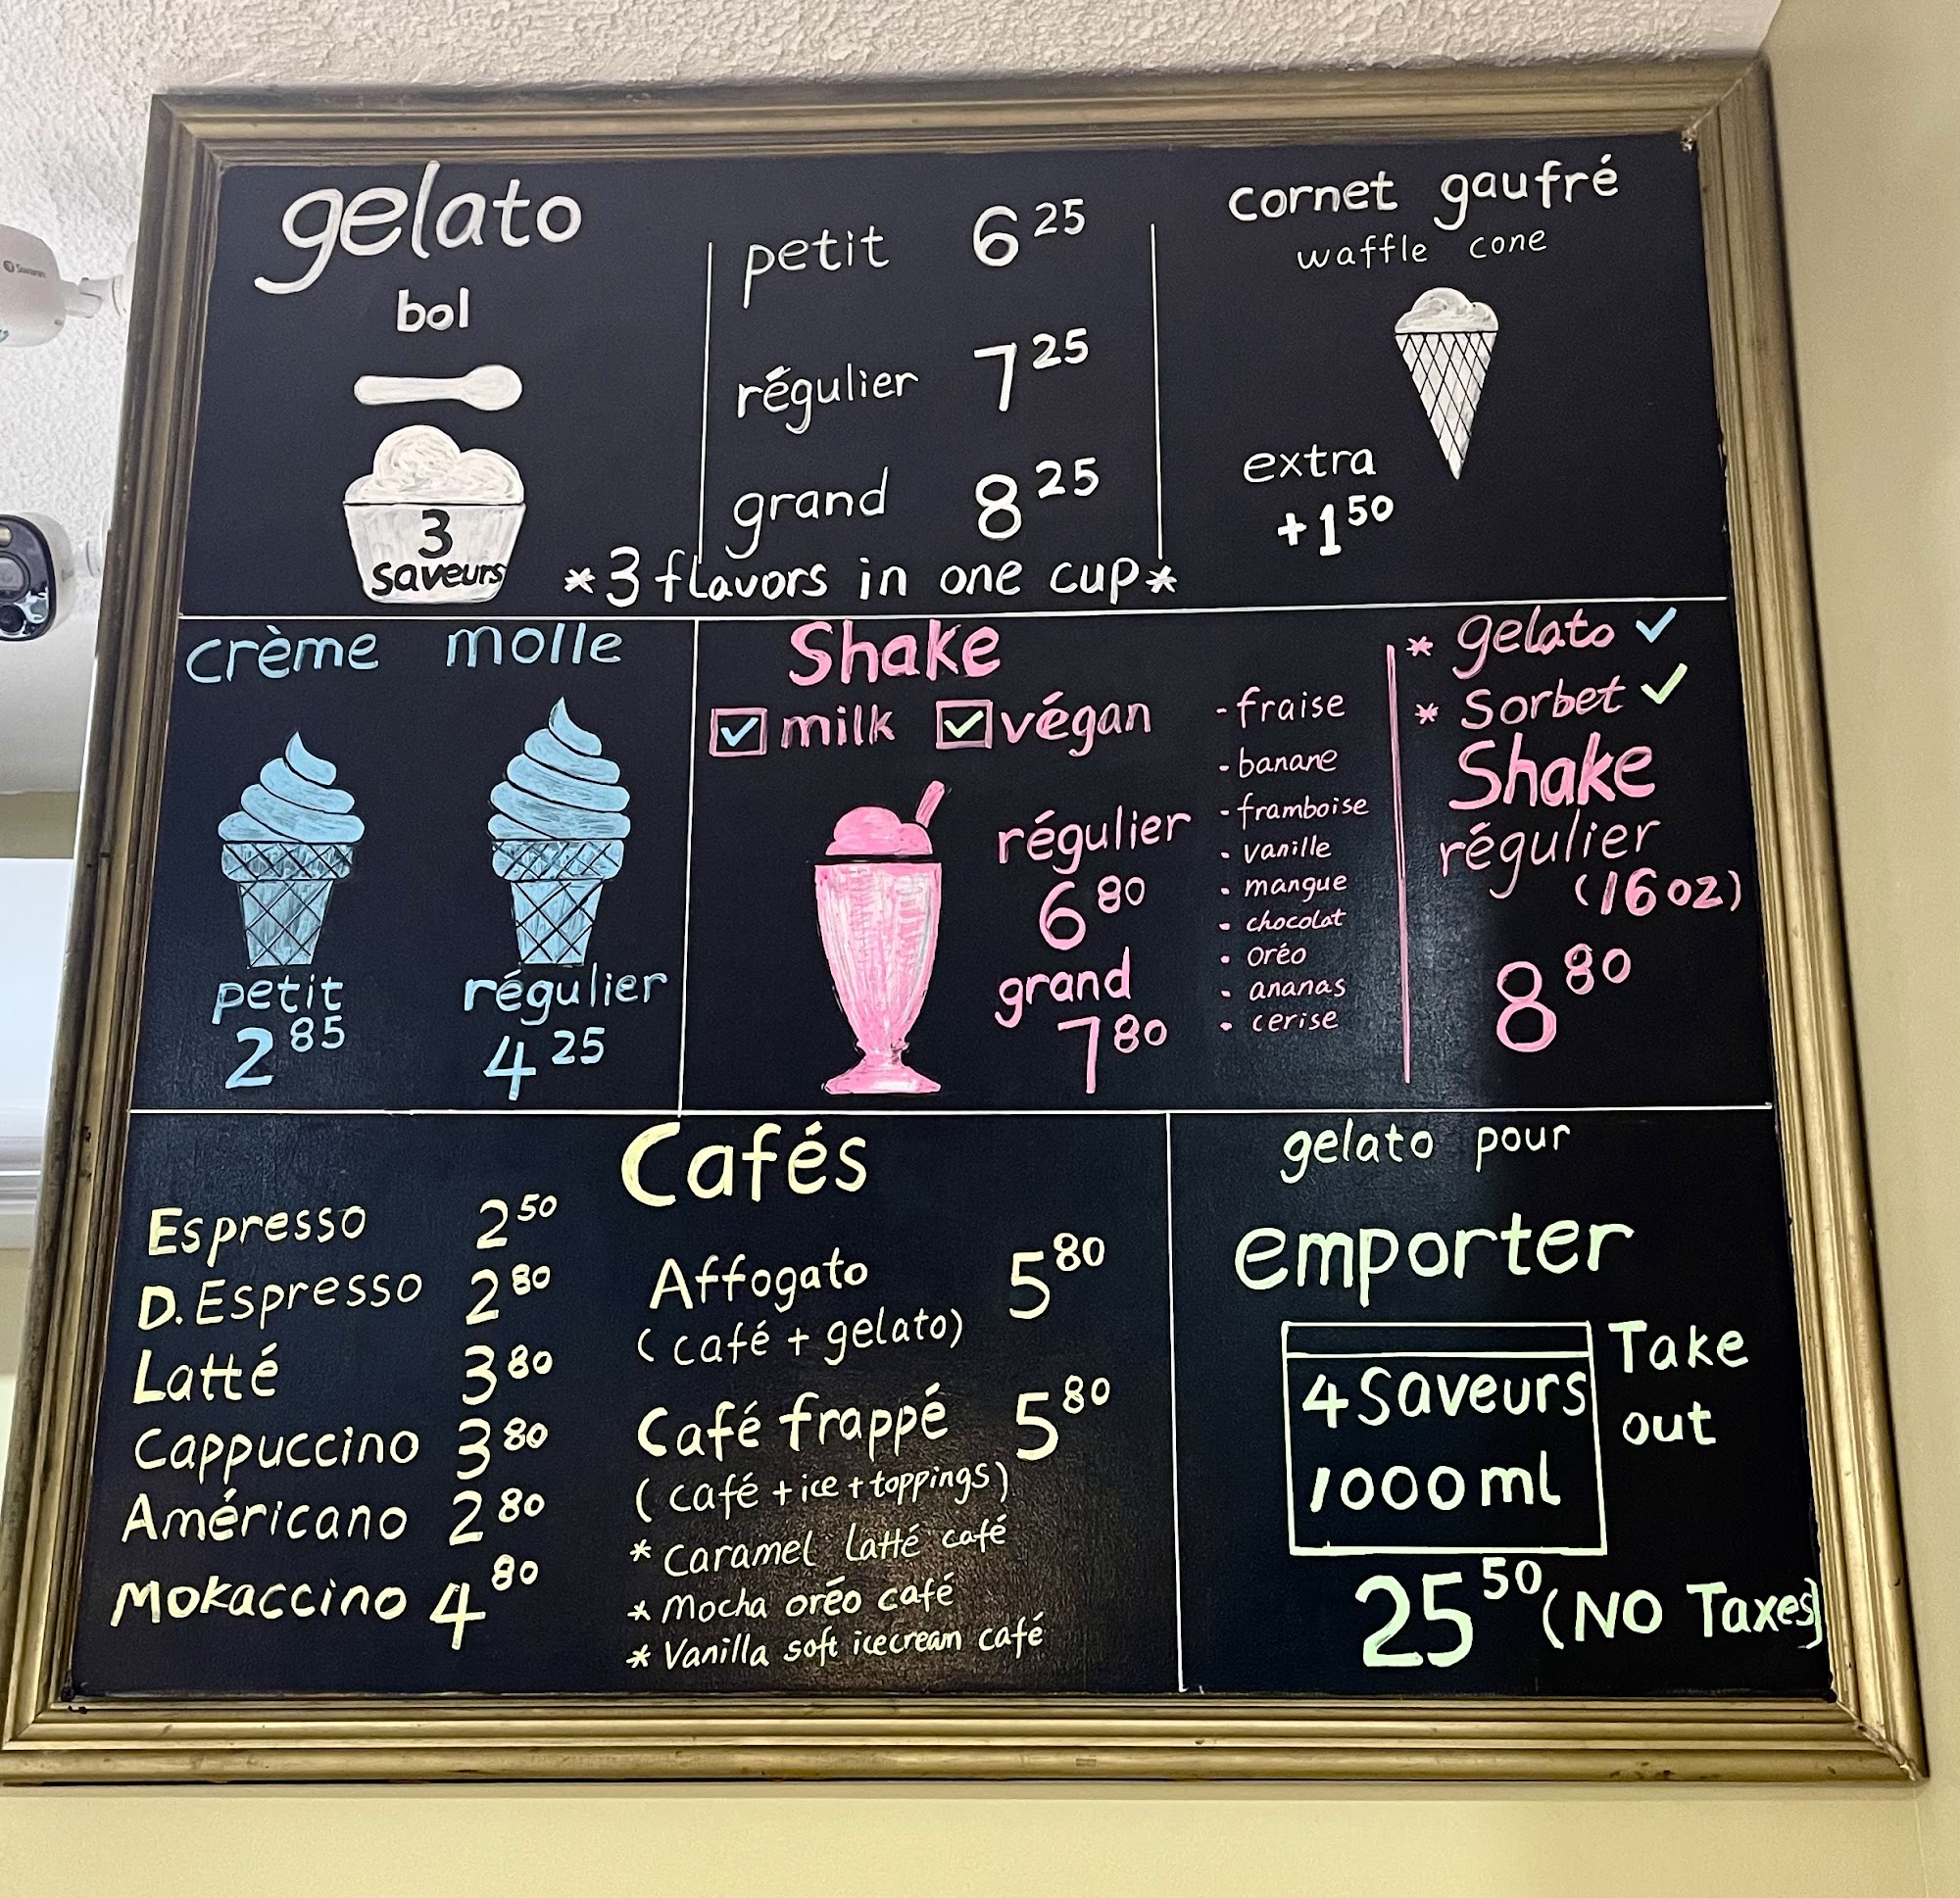 gelato
bol
3
saveurs
petit 6 25
régulier 7 25
grand 8 25
*3 flavors in one cup*
cornet gaufré
waffle cone
extra
+1 50
crème molle
petit
2 85
régulier
4 25
Shake
milk végan
régulier
6 80
grand
7 80
- fraise
- banane
- framboise
· vanille
· mangue
· chocolat
· oréo
· ananas
· cerise
* gelato ✓
* Sorbet ✓
Shake
régulier
(16oz)
8 80
Cafés
Espresso 2 50
D. Espresso 2 80
Latté 3 80
Cappuccino 3 80
Américano 2 80
Mokaccino 4 80
Affogato 5 80
(café + gelato)
Café frappé 5 80
(café + ice + toppings)
* Caramel Latté café
* Mocha oréo café
* Vanilla soft icecream café
gelato pour
emporter
4 Saveurs
1000 ml
Take
out
25 50 (NO Taxes)